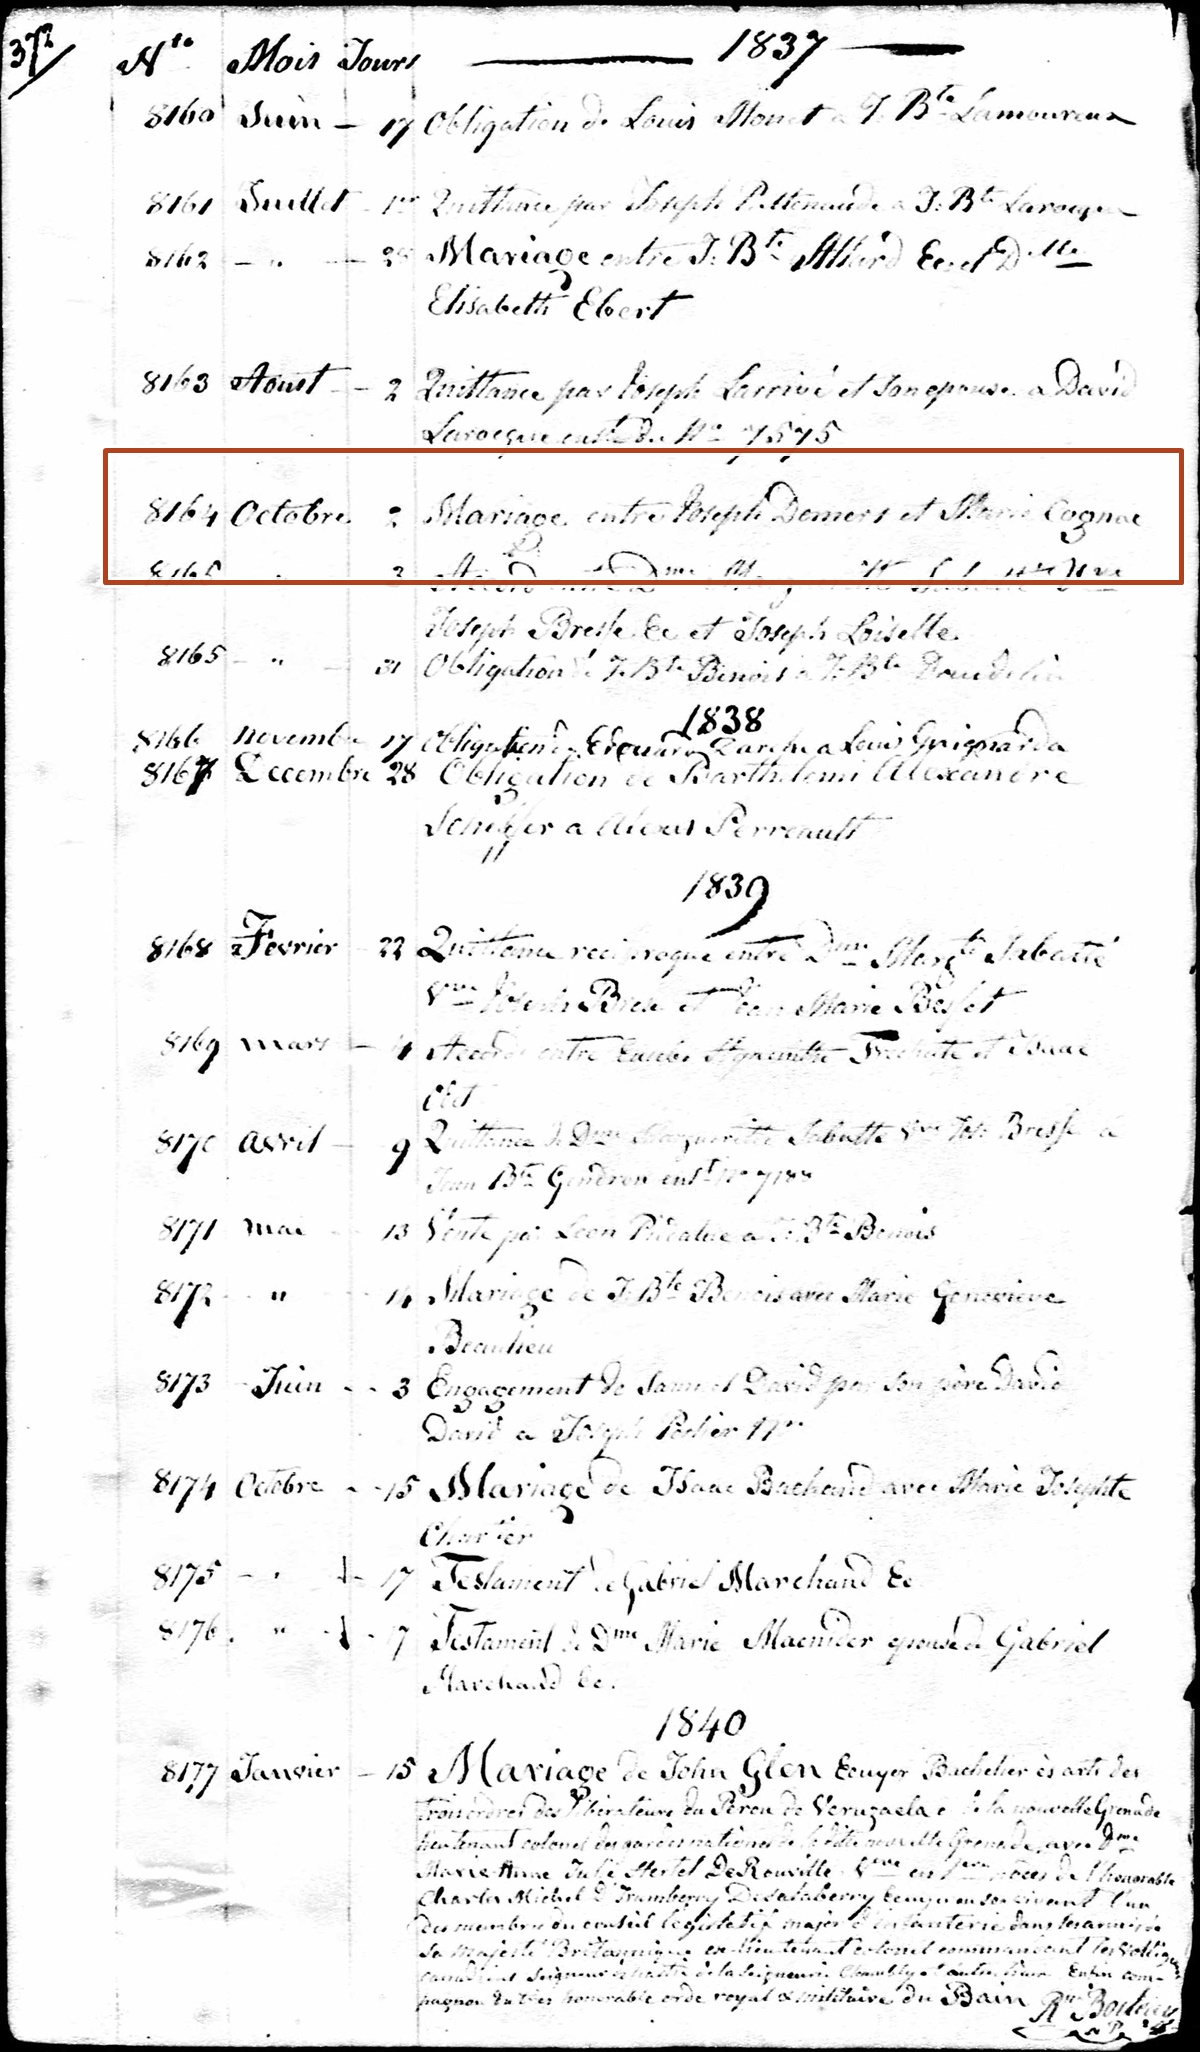 372
Nto Mois Jours 1837
8160 Juin 17 Obligation de Louis Monet a J. Bte Lamoureux
8161 Juillet 1er Quittance par Joseph a J. Bte Larocque
8162 " 28 Mariage entre J. Bte Allard Ec et Dlle
Elisabeth Ebert
8163 Aoust 2 Quittance par Joseph Larrivé et son epouse a David
Larocque du No 7575
8164 Octobre 2 Mariage entre Joseph Demers et Marie Cognac
8165 " 3 Accord entre Dme Vve
Joseph Bresse &c et Joseph Loiselle
8165 " 31 Obligation de J. Bte Benoit a J. Bte Daudelin
1838
8166 novembre 17 Obligation Edouard Darche a Louis Guignard
8167 Decembre 28 Obligation de Barthelemi Alexandre
Scheffer a Alexis Perreault
1839
8168 Fevrier 22 Quittance reciproque entre Dme Margte Sabatté
Vve Joseph Bresse et Jean Marie Besset
8169 mars 4 Accord entre Eusebe Hyacinthe Frechette et Isaac
8170 avril 9 Quittance de Dme Marguerite Sabatte Vve Jos. Bresse a
Jean Bte Gendron No 7188
8171 mai 13 Vente par Leon a J. Bte Benois
8172 " 14 Mariage de J. Bte Benois avec Marie Genevieve
Beaulieu
8173 Juin 3 Engagement de Samuel David par son père David
David a Joseph
8174 Octobre 15 Mariage de Isaac Bachand avec Marie Josephte
Charter
8175 " 17 Testament de Gabriel Marchand Ec
8176 " 17 Testament de Dme Marie Macnider epouse de Gabriel
Marchand Ec.
1840
8177 Janvier 15 Mariage de John Glen Ecuyer Bachelier ès arts des
trois ordres des liberateurs du Perou de Venuzaela & de la nouvelle Grenade
lieutenant colonel des gardes nationales de la dite nouvelle Grenade, avec Dme
Marie Anne Julie Hertel DeRouville Veuve en 1eres noces de l'honorable
Charles Michel d'Irumberry Desalaberry Ecuyer en son vivant l'un
des membres du conseil legislatif major d'infanterie dans les armées de
Sa Majesté Britannique, lieutenant colonel commandant les voltigeurs
canadiens Seigneur de la Seigneurie Chambly et autres lieux Enfin com-
pagnon du tres honorable orde royal & militaire du Bain